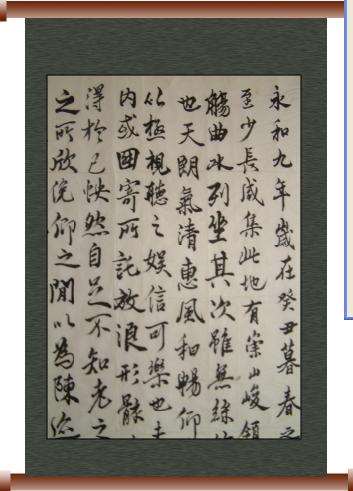 永和九年歲在癸丑暮春
至少長咸集此地有崇山峻領
觴曲水列坐其次雖無絲
也天朗氣清惠風和暢仰
以極視聽之娛信可樂也
內或因寄所託放浪形骸
得於己快然自足不知老之
之所欣俛仰之閒以為陳迹